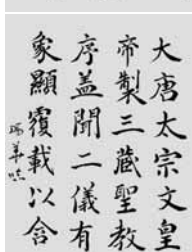 大唐太宗文皇
帝製三藏聖教
序蓋聞二儀有
象顯覆載以含